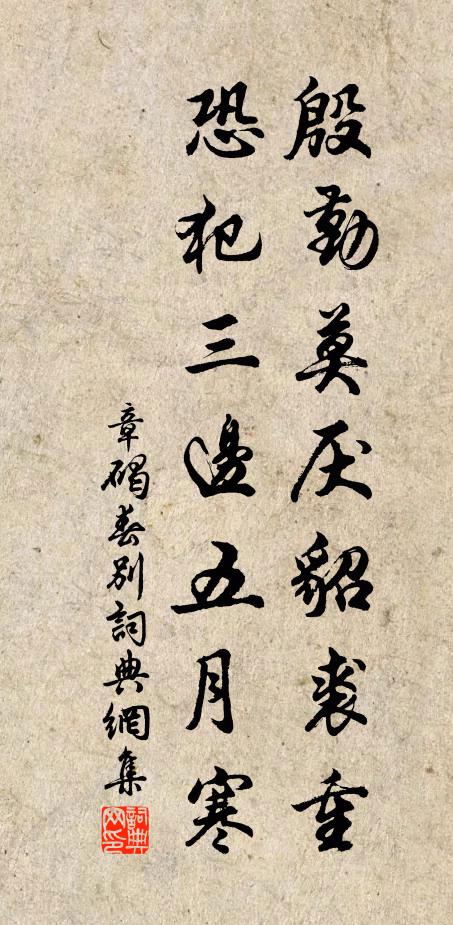 殷勤莫厌貂裘重
恐犯三邊五月寒
章碣春別詞典網集
詞典網印